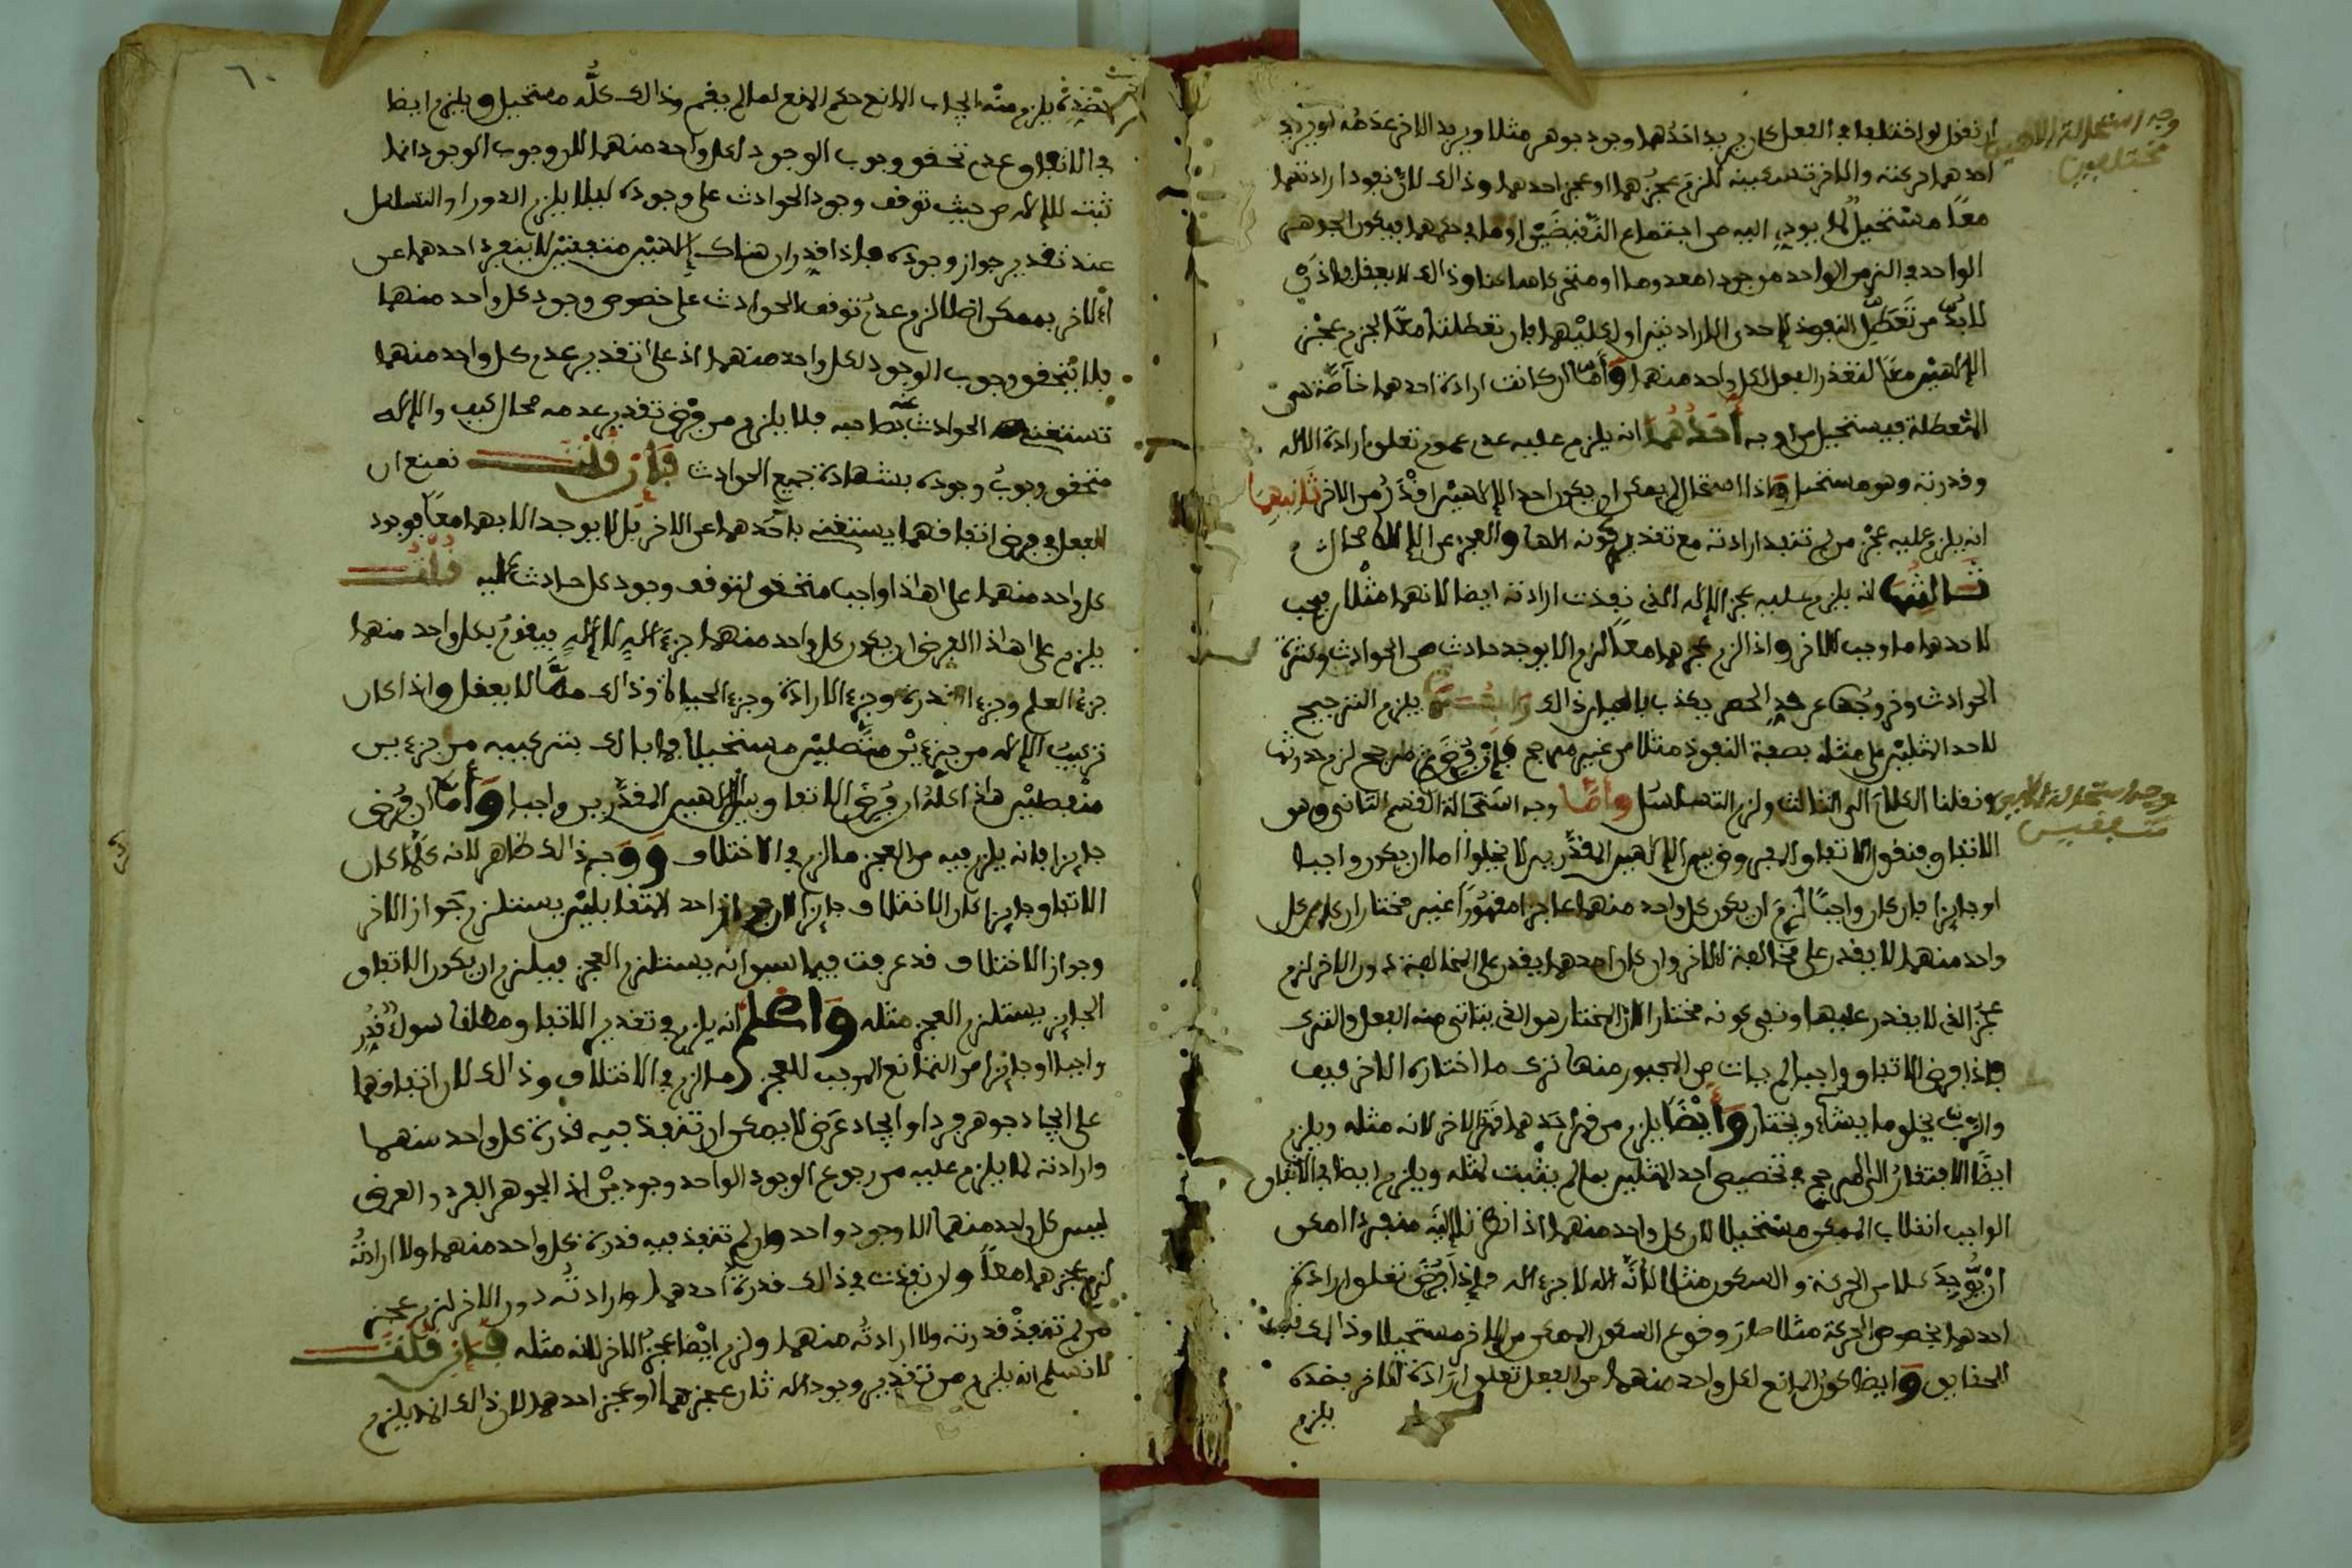 ان نقول لو اختلفا في الفعل كان يريد احدهما وجود جوهر مثلا ويريد الاخر عدمه او يريد
وجه استحالة الالهين
مختلفين
احدهما حركته والاخر تسكينه للزم عجزهما او عجز احدهما وذالك لان نفوذ ارادتهما
معا مستحيل لما يودي اليه من اجتماع النقيضين او ما في حكمهما فيكون الجوهر
الواحد في الزمن الواحد موجودا معدوما او متحركا ساكنا وذالك لا يعقل فاذن
لا بد من تعطل النفوذ لاحدى الارادتين او لكليهما فان تعطلتا معا لزم عجز
الالهين معا لتعذر الفعل لكل واحد منهما وأما ان كانت ارادة احدهما خاصة هي
المتعطلة فيستحيل من اوجه أحدها انه يلزم عليه عدم عموم تعلق ارادة الاله
وقدرته وهو مستحيل واذا استحال لم يمكن ان يكون احد الالهين اقدر من الاخر ثانيها
انه يلزم عليه عجز من لم تنفذ ارادته مع تقدير كونه الها والعجز على الاله محال
ثالثها انه يلزم عليه عجز الاله الذي نفذت ارادته ايضا لانهما مثلان يجب
لاحدهما ما وجب للاخر واذا لزم عجزهما معا لزم الا يوجد حادث من الحوادث وكثرة
الحوادث وخروجها عن حد الحصر يكذب بالعيان ذالك رابعها يلزم الترجيح
لاحد المثلين على مثله بصفة النفوذ مثلا من غير مرجح فإن فرض مرجح لزم حدوثها
ونقلنا الكلام الى الثالث ولزم التسلسل وأما وجه استحالة القسم الثاني وهو
وجه استحالة الالهين
متفقين
الاتفاق فنقول الاتفاق المفروض بين الالهين المقدرين لا يخلوا اما ان يكون واجبا
او جايزا فان كان واجبا لزم ان يكون كل واحد منهما عاجزا مقهورا غير مختار ان كان كل
واحد منهما لا يقدر على مخالفة الاخر وان كان احدهما يقدر على المخالفة دون الاخر لزم
عجز الذي لا يقدر عليها ونفي كونه مختارا لان المختار هو الذي يتاتى منه الفعل والترك
فاذا فرض الاتفاق واجبا لم يات من المجبور منهما ترك ما اختاره الاخر كيف
والرب يخلق ما يشاء ويختار وأيضا يلزم من قهر احدهما قهر الاخر لانه مثله ويلزم
ايضا الافتقار الى المرجح في تخصيص احد المثلين بما لم يثبت لمثله ويلزم ايضا في الاتفاق
الواجب انقلاب الممكن مستحيلا لان كل واحد منهما اذا نظر الاله منفردا امكن
ان يوجد كلا من الحركة والسكون مثلا لأنه اله لا جزء اله فاذا فرض تعلق ارادة
احدهما بخصوص الحركة مثلا صار وقوع السكون الممكن من الاخر مستحيلا وذالك
الحقايق وايضا كون المانع لكل واحد منهما من الفعل تعلق ارادة الاخر بضده
يلزم
٦٠
بضده يلزم منه ايجاب المانع حكم المنع لما لم يقم وذالك كله مستحيل ويلزم ايضا
في الاتفاق عدم تحقق وجوب الوجود لكل واحد منهما لان وجوب الوجود انما
ثبت للاله من حيث توقف وجود الحوادث على وجوده ليلا يلزم الدور او التسلسل
عند تقدير جواز وجوده فاذا قدر ان هناك إلهين متفقين لا ينفرد احدهما عن
الاخر بممكن اصلا لزم عدم توقف الحوادث على خصوص وجود كل واحد منهما
فلا يتحقق وجوب الوجود لكل واحد منهما اذ على تقدير عدم كل واحد منهما
تستغني الحوادث عنه بصاحبه فلا يلزم من فرض تقدير عدمه محال كيف والاله
متحقق وجوب وجوده بشهادة جميع الحوادث فإن قلت نمنع ان
الفعل في فرض اتفاقهما يستغني باحدهما عن الاخر بل لا يوجد الا بهما معا فوجود
كل واحد منهما على هذا واجب متحقق لتوقف وجود كل حادث عليه قلت
يلزم على هذا الفرض ان يكون كل واحد منهما جزء اله لا إله فيقوم بكل واحد منهما
جزء العلم وجزء القدرة وجزء الارادة وجزء الحياة وذالك مما لا يعقل واذا كان
تركيب الاله من جزءين متصلين مستحيلا فما بالك بتركيبه من جزءين
منفصلين هذا كله ان فرض الاتفاق بين الالهين المقدرين واجبا وأما ان فرض
جايزا فانه يلزم فيه من العجز ما لزم في الاختلاف ووجه ذالك ظاهر لانه كلما كان
الاتفاق جايزا كان الاختلاف جايزا لان جواز احد المتقابلين يستلزم جواز الاخر
وجواز الاختلاف قد عرفت فيما سبق انه يستلزم العجز فيلزم ان يكون الاتفاق
الجايز يستلزم العجز مثله واعلم انه يلزم في تقدير الاتفاق مطلقا سواء قدر
واجبا او جايزا من التمانع الموجب للعجز ما لزم في الاختلاف وذالك لان اتفاقهما
على ايجاد جوهر فرد او ايجاد عرض لا يمكن ان تنفذ فيه قدرة كل واحد منهما
وارادته لما يلزم عليه من رجوع الوجود الواحد وجودين اذ الجوهر الفرد والعرض
ليس كل واحد منهما الا وجود واحد وان لم تنفذ فيه قدرة كل واحد منهما ولا ارادته
لزم عجزهما معا وان نفذت في ذالك قدرة احدهما وارادته دون الاخر لزم عجز
من لم تنفذ قدرته ولا ارادته منهما ولزم ايضا عجز الاخر لانه مثله فإن قلت
لا نسلم انه يلزم من تقدير وجود اله ثان عجزهما او عجز احدهما لان ذالك انما يلزم